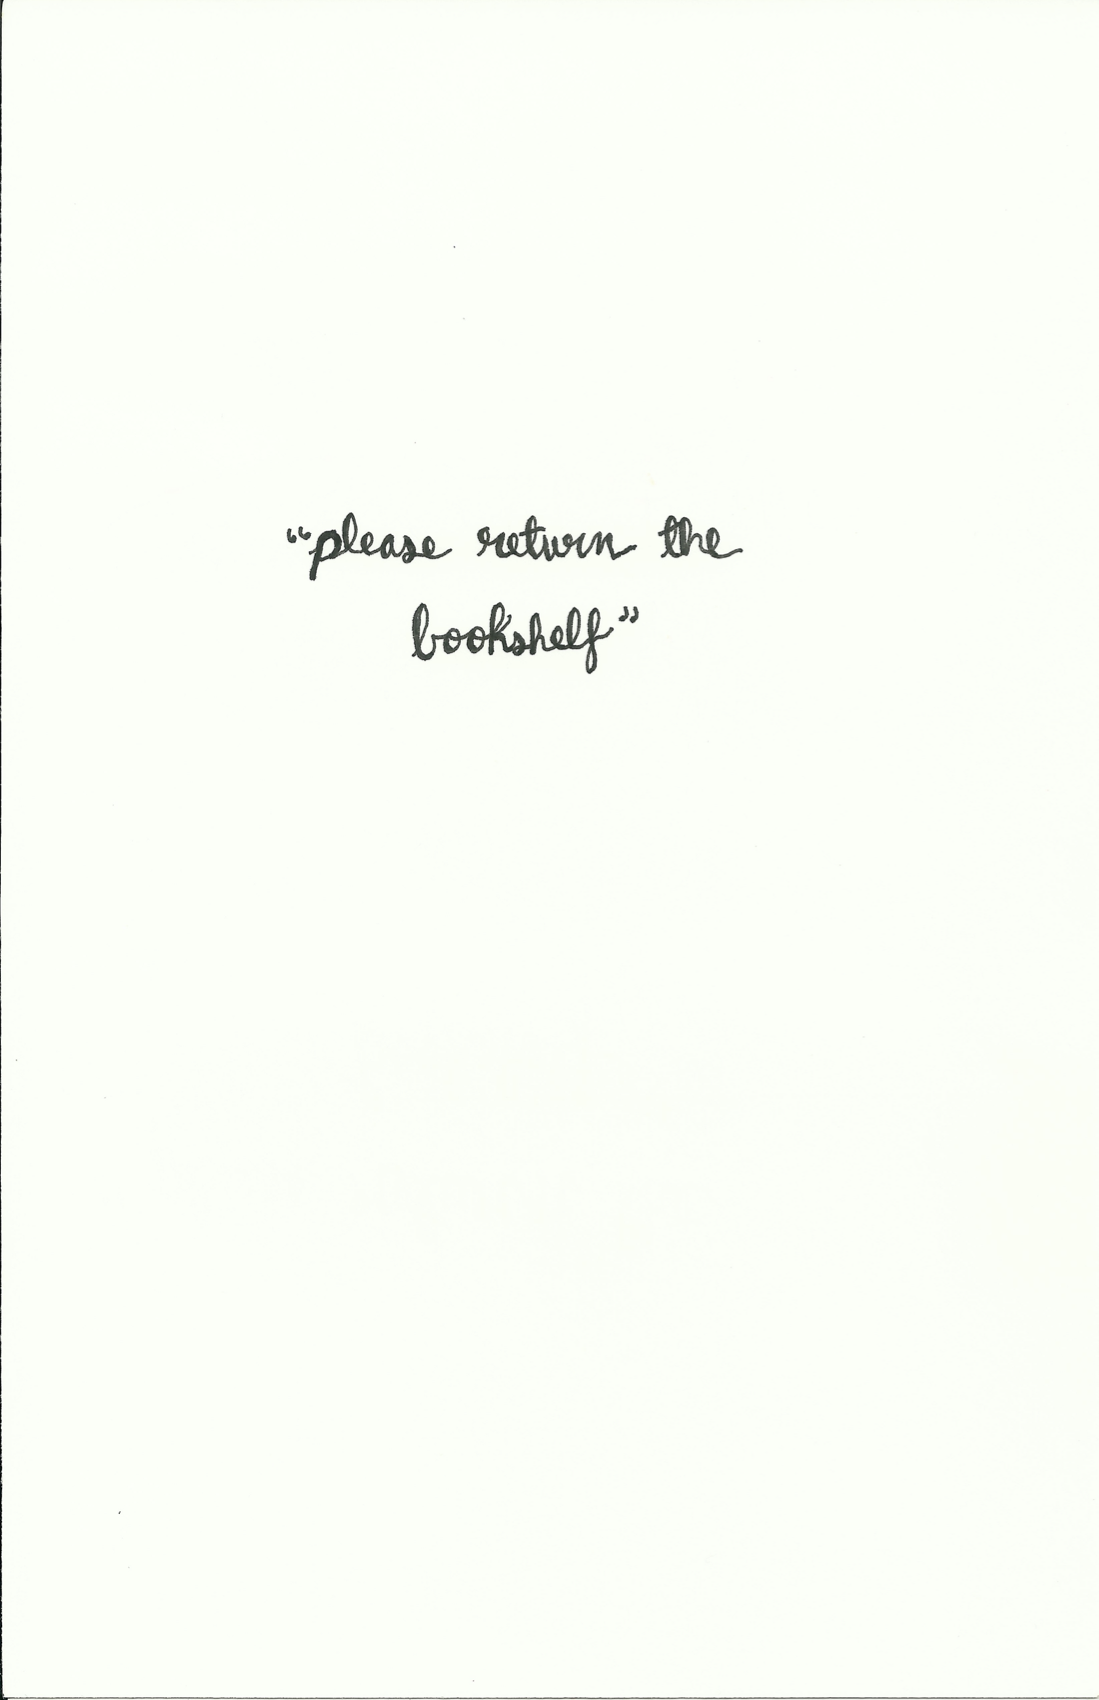 “please return the
bookshelf”